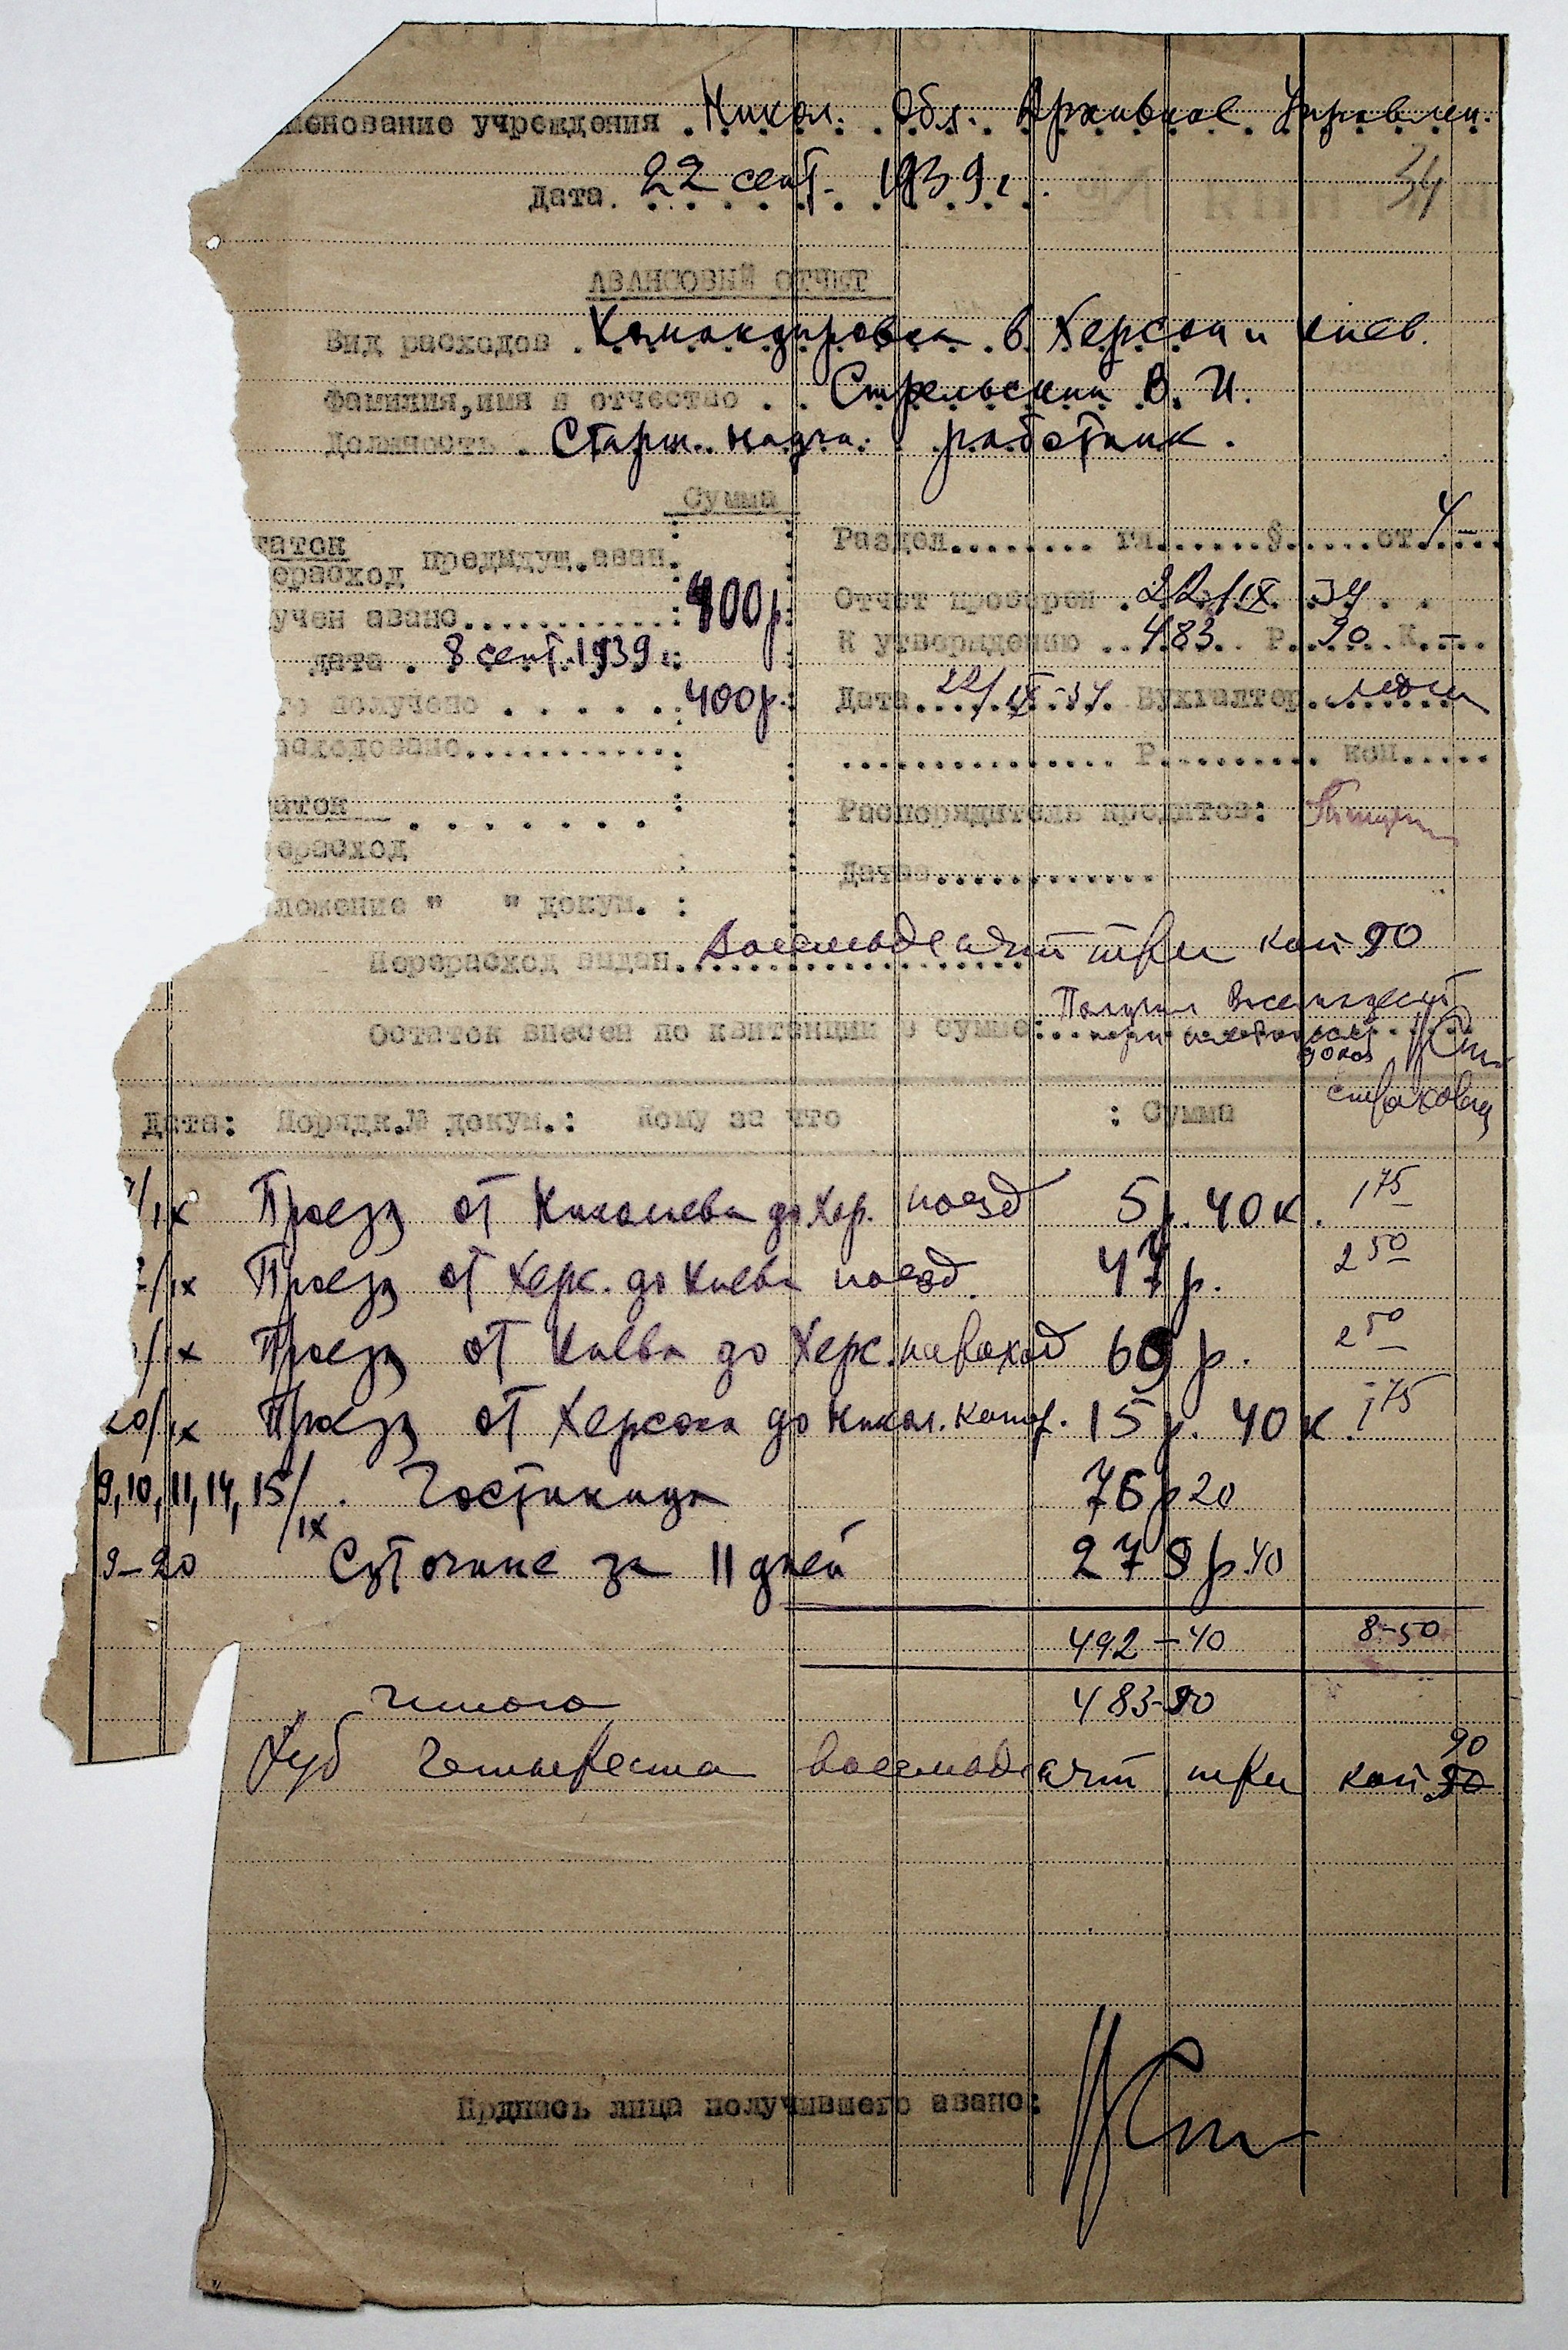 менование учреждения Микол. Обл. Архивное Управлен.
Дата. 22 сент. 1939 г.
34
АВАНСОВЫЙ ОТЧЕТ
Вид расходов Командировка в Херсон и Киев.
Фамилия, имя и отчество . . Стрельский В. И.
Должность . Старш. научн. работник.
Сумма
таток
ерасход предыдущ.аван.
Раздел........ гл......§.....ст.4-
учен аванс........... 400р.
Отчет проверен . 22/IX 39
дата . 8 сент. 1939 г.
К утверждению .. 483 р. 90 к.-
го получено . . . . . 400р.
Дата 22/IX-39 Бухгалтер
асходовано...........
............... Р......... коп.....
аток
ерасход
Распорядитель кредитов:
Дата............
ложение " " докум. :
Перерасход выдан восемьдесят три коп 90
Остаток внесен по квитанции в сумме:
Получил Восемьдесят
три
90 коп
страховка
Дата: Порядк.№ докум.: Кому за что : Сумма
/IX Проезд от Николаева до Хер. поезд 5 р. 40 к. 1 75
/IX Проезд от Херс. до Киева поезд. 47 р. 2 50
/IX Проезд от Киева до Херс. пароход 69 р. 2 50
20/IX Проезд от Херсона до Никол. катер. 15 р. 40 к. 1 75
9, 10, 11, 14, 15/IX . Гостиница 76 р 20
9-20 Суточные за 11 дней 278 р. 40
492-40 8-50
483-90
Руб Четыреста восемьдесят три коп 50 90
Подпись лица получившего аванс: